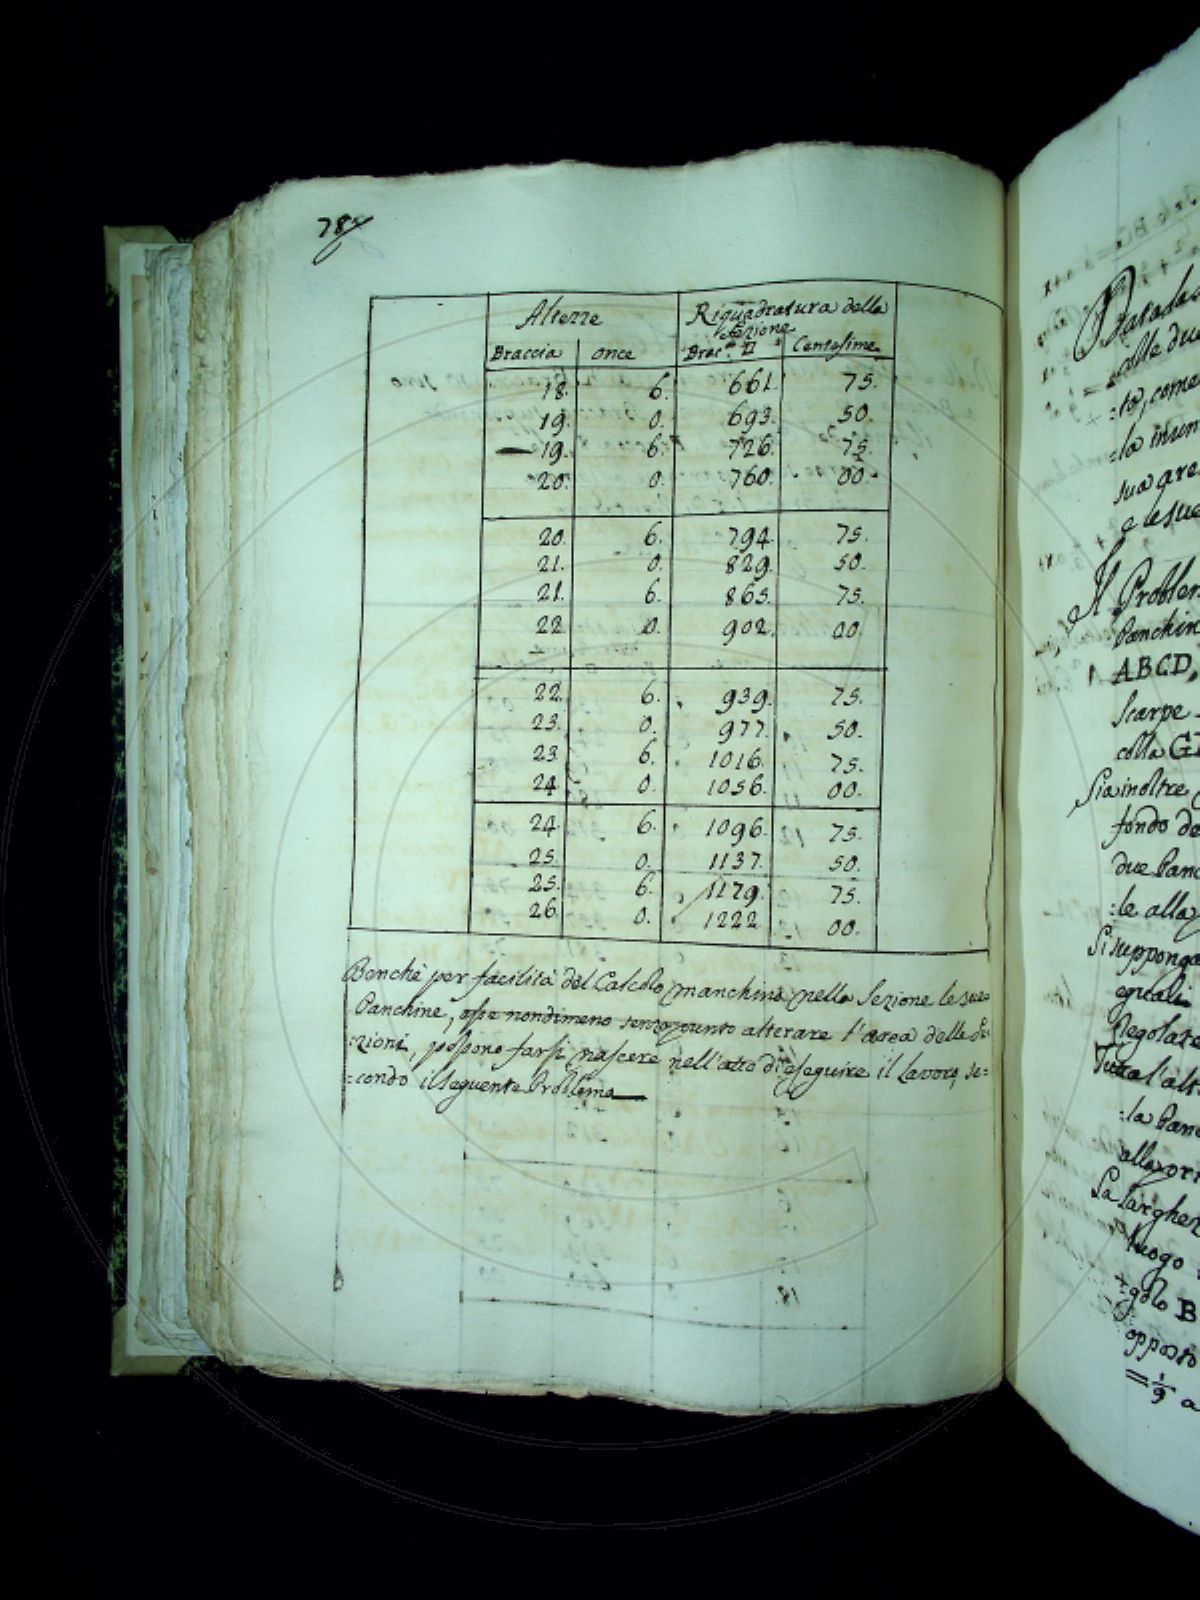 78
Altezze Riquadratura della
Sezione
Braccia once Brac.e □ Centesime
18. 6. 661. 75.
19. 0. 693. 50.
19. 6. 726. 75.
20. 0. 760. 00.
20. 6. 794. 75.
21. 0. 829. 50.
21. 6. 865. 75.
22. 0. 902. 00.
22. 6. 939. 75.
23. 0. 977. 50.
23. 6. 1016. 75.
24. 0. 1056. 00.
24. 6. 1096. 75.
25. 0. 1137. 50.
25. 6. 1179. 75.
26. 0. 1222. 00.
Benchè per facilità del Calcolo manchino nella Sezione le sue
Panchine, esse nondimeno senza punto alterare l'area delle Se:
:zioni, possono farsi nascere nell'atto di eseguire il Lavoro, se=
=condo il seguente Problema
alle due
:to, come
:la insin
sua are
e le sue
Il Problem
Panchin
ABCD,
Scarpe
colla G
Sia inoltre
fondo de
due Panc
:le alla
Si suppong
eguali
Regolare
Tutta l'alt
:la Panc
alla ori
La larghez
luogo
:golo B
opposto
= 1/9 a